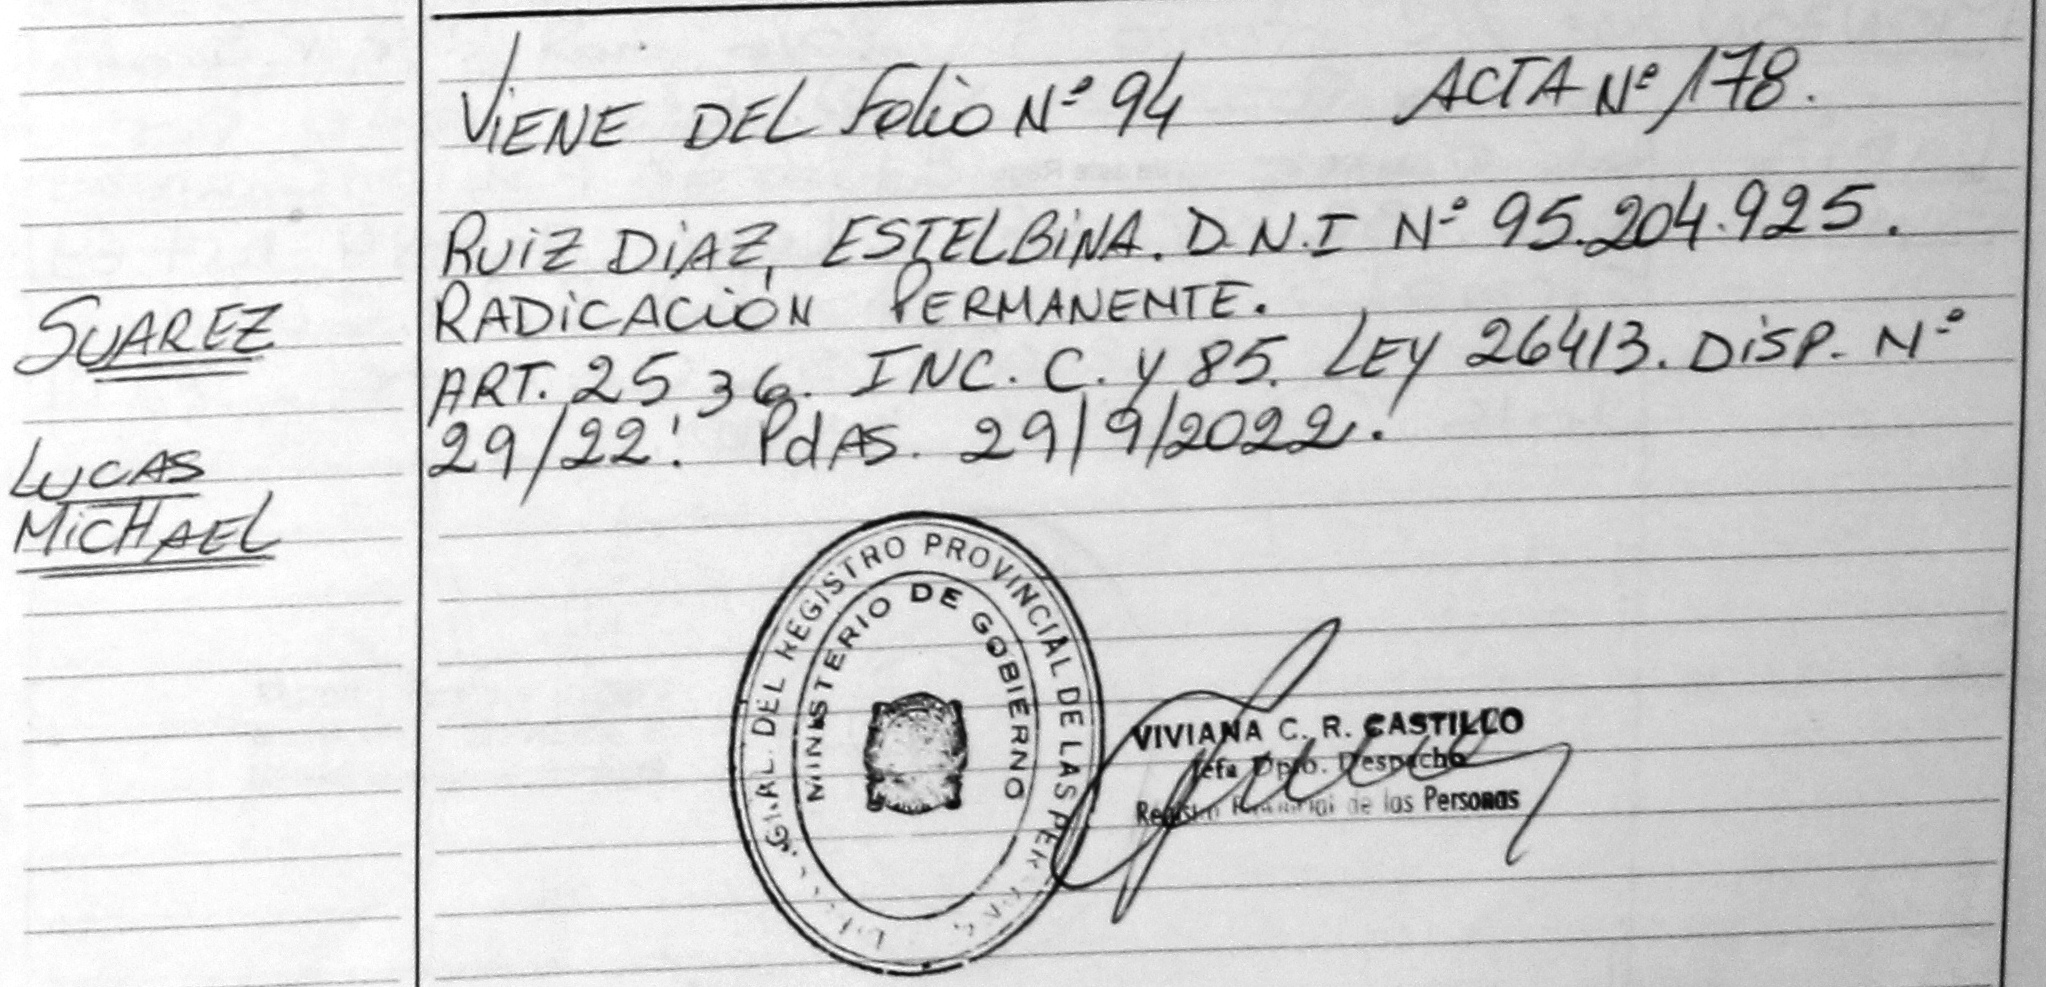 VIENE DEL Folio Nº 94 ACTA Nº 178.
RUIZ DIAZ, ESTELBINA. D.N.I Nº 95.204.925.
RADICACIÓN PERMANENTE.
ART. 25 36. INC. C. y 85. LEY 26413. DISP. Nº
29/22. PdAS. 29/9/2022.
SUAREZ
LUCAS
MICHAEL
GRAL. DEL REGISTRO PROVINCIAL DE LAS
MINISTERIO DE GOBIERNO
VIVIANA C. R. CASTILLO
Jefa Dpto. Despacho
de las Personas